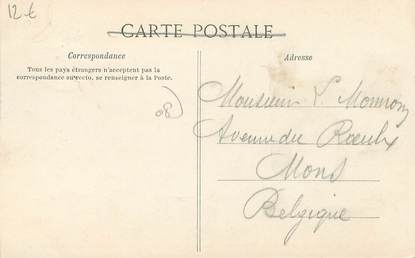 12 €
CARTE POSTALE
Correspondance
Tous les pays étrangers n'acceptent pas la
correspondance au verso, se renseigner à la Poste.
08
Adresse
Monsieur L. Monnom
Avenue du Rœulx
Mons
Belgique